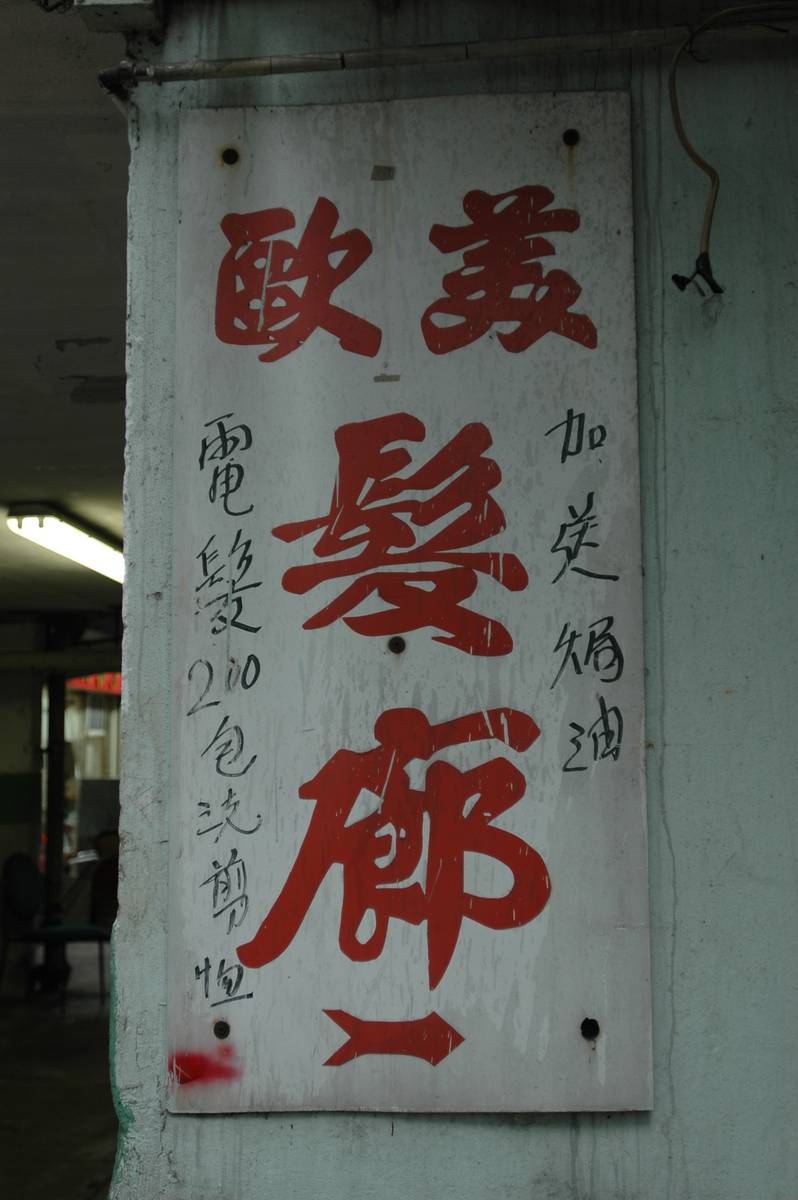 歐美
髮廊
電髮200包洗剪恤
加送焗油